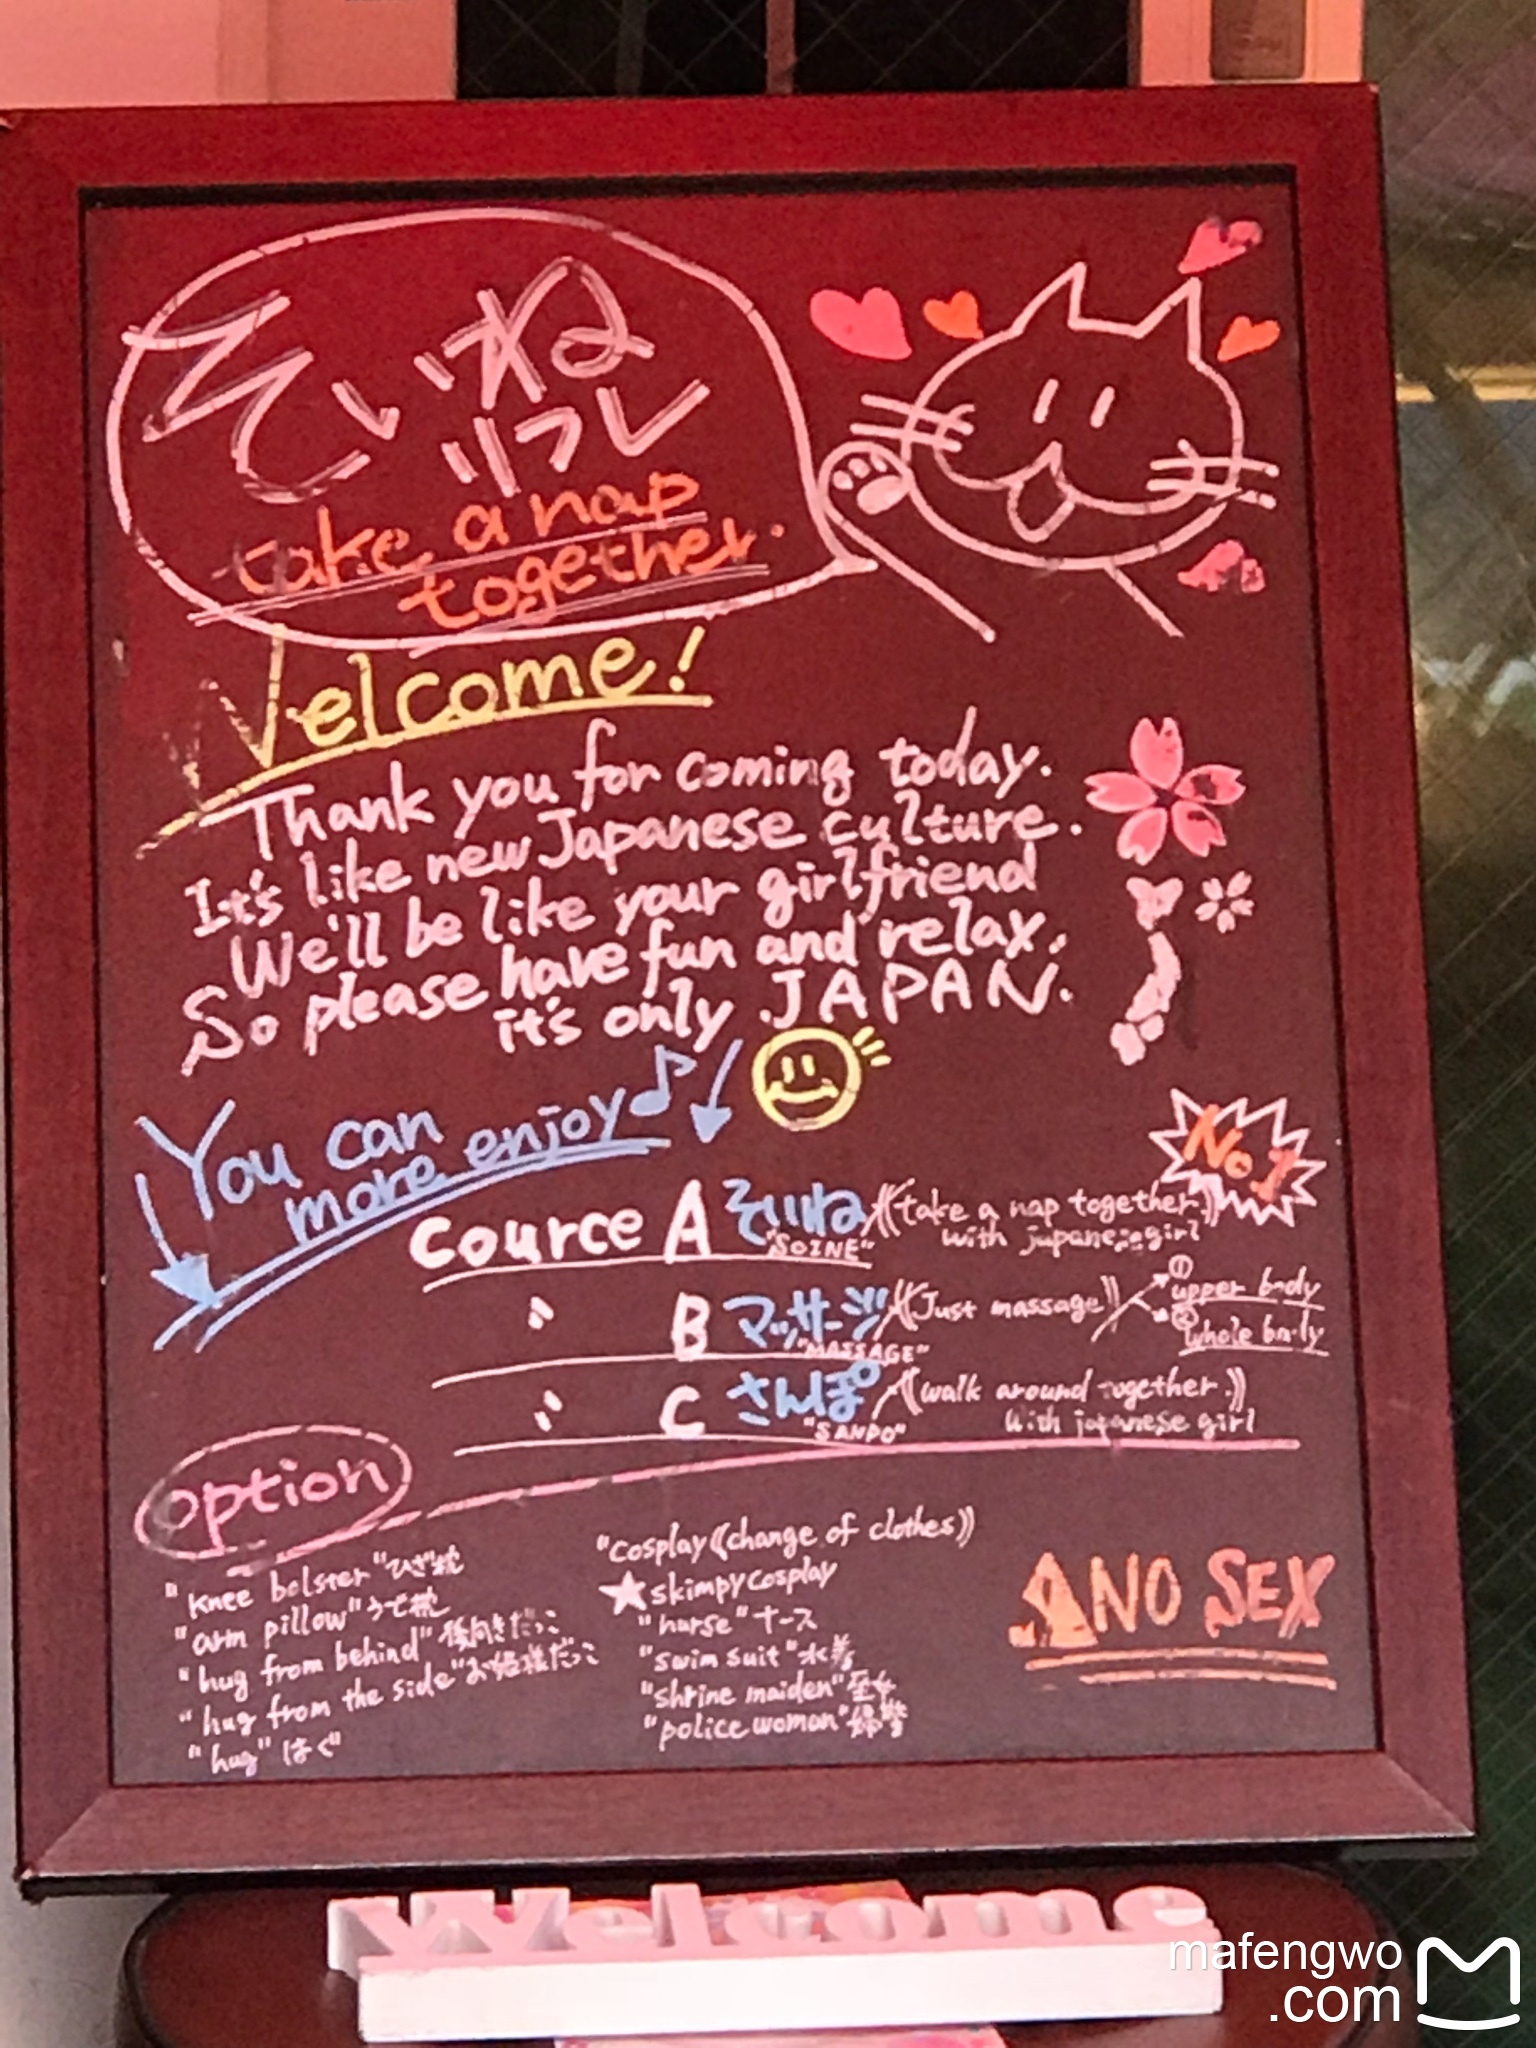 そいね
リフレ
take a nap
together.
Welcome!
Thank you for coming today.
It's like new Japanese culture.
We'll be like your girlfriend
So please have fun and relax.
it's only JAPAN.
You can
more enjoy♪
No1
Cource A そいね《take a nap together.》
"SOINE" with japanese girl
〃 B マッサージ《Just massage》 ① upper body
"MASSAGE" ② whole body
〃 C さんぽ《walk around together.》
"SANPO" with japanese girl
option
"knee bolster" ひざ枕
"arm pillow" うで枕
"hug from behind" 後向きだっこ
"hug from the side" お姫様だっこ
"hug" はぐ
"cosplay《change of clothes》
★skimpy cosplay
"nurse" ナース
"swim suit" 水着
"shrine maiden"
"police woman" 婦警
NO SEX
Welcome
mafengwo
.com